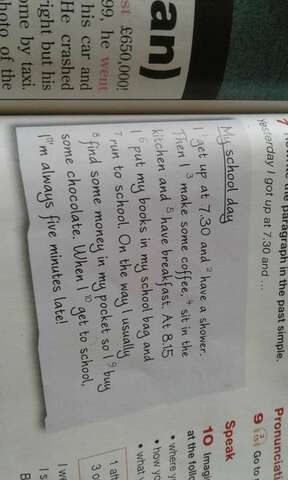 an)
st £650,000!
99, he went
his car and
He crashed
right but his
ome by taxi.
hoto of the
the paragraph in the past simple.
Yesterday I got up at 7.30 and ...
My school day
I ¹get up at 7.30 and ²have a shower.
Then I ³make some coffee, ⁴sit in the
kitchen and ⁵have breakfast. At 8.15
I ⁶put my books in my school bag and
⁷run to school. On the way I usually
⁸find some money in my pocket so I ⁹buy
some chocolate. When I ¹⁰get to school,
I¹¹'m always five minutes late!
Pronunciati
9 Go to
Speak
10 Imagi
at the follo
• where y
• how yo
• what
1 att
3 o
I w
I s